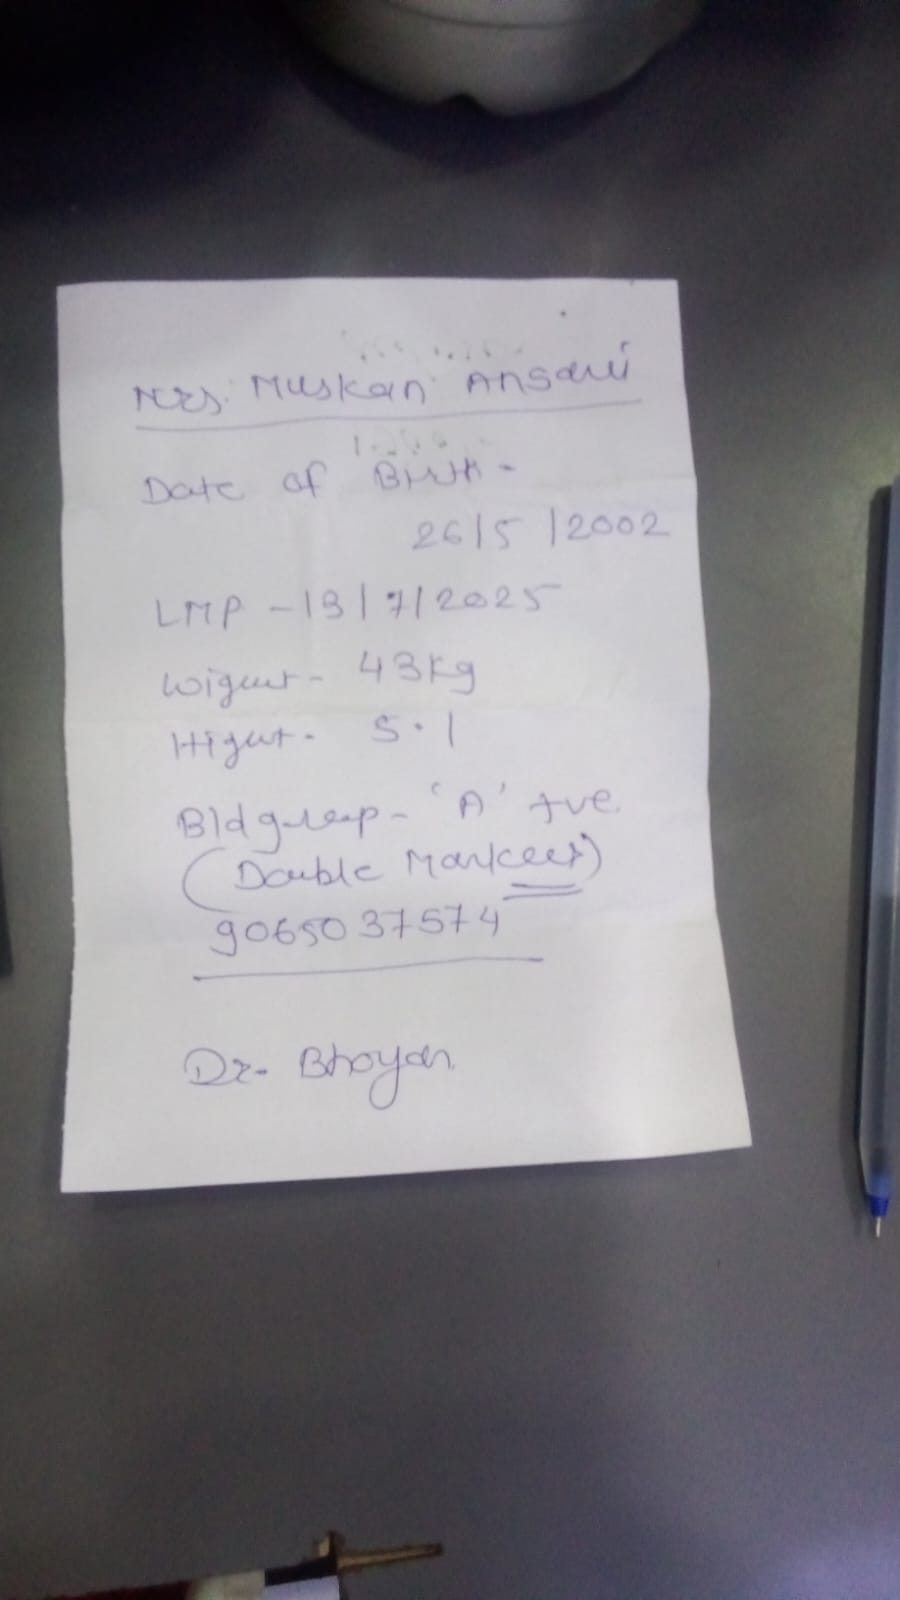 Mrs. Muskan Ansari
Date of Birth -
26/5/2002
LMP - 13/7/2025
Wigut - 43kg
Higut - 5.1
Bldgroup - 'A' +ve
(Double Marker)
9065037574
Dr. Bhoyan